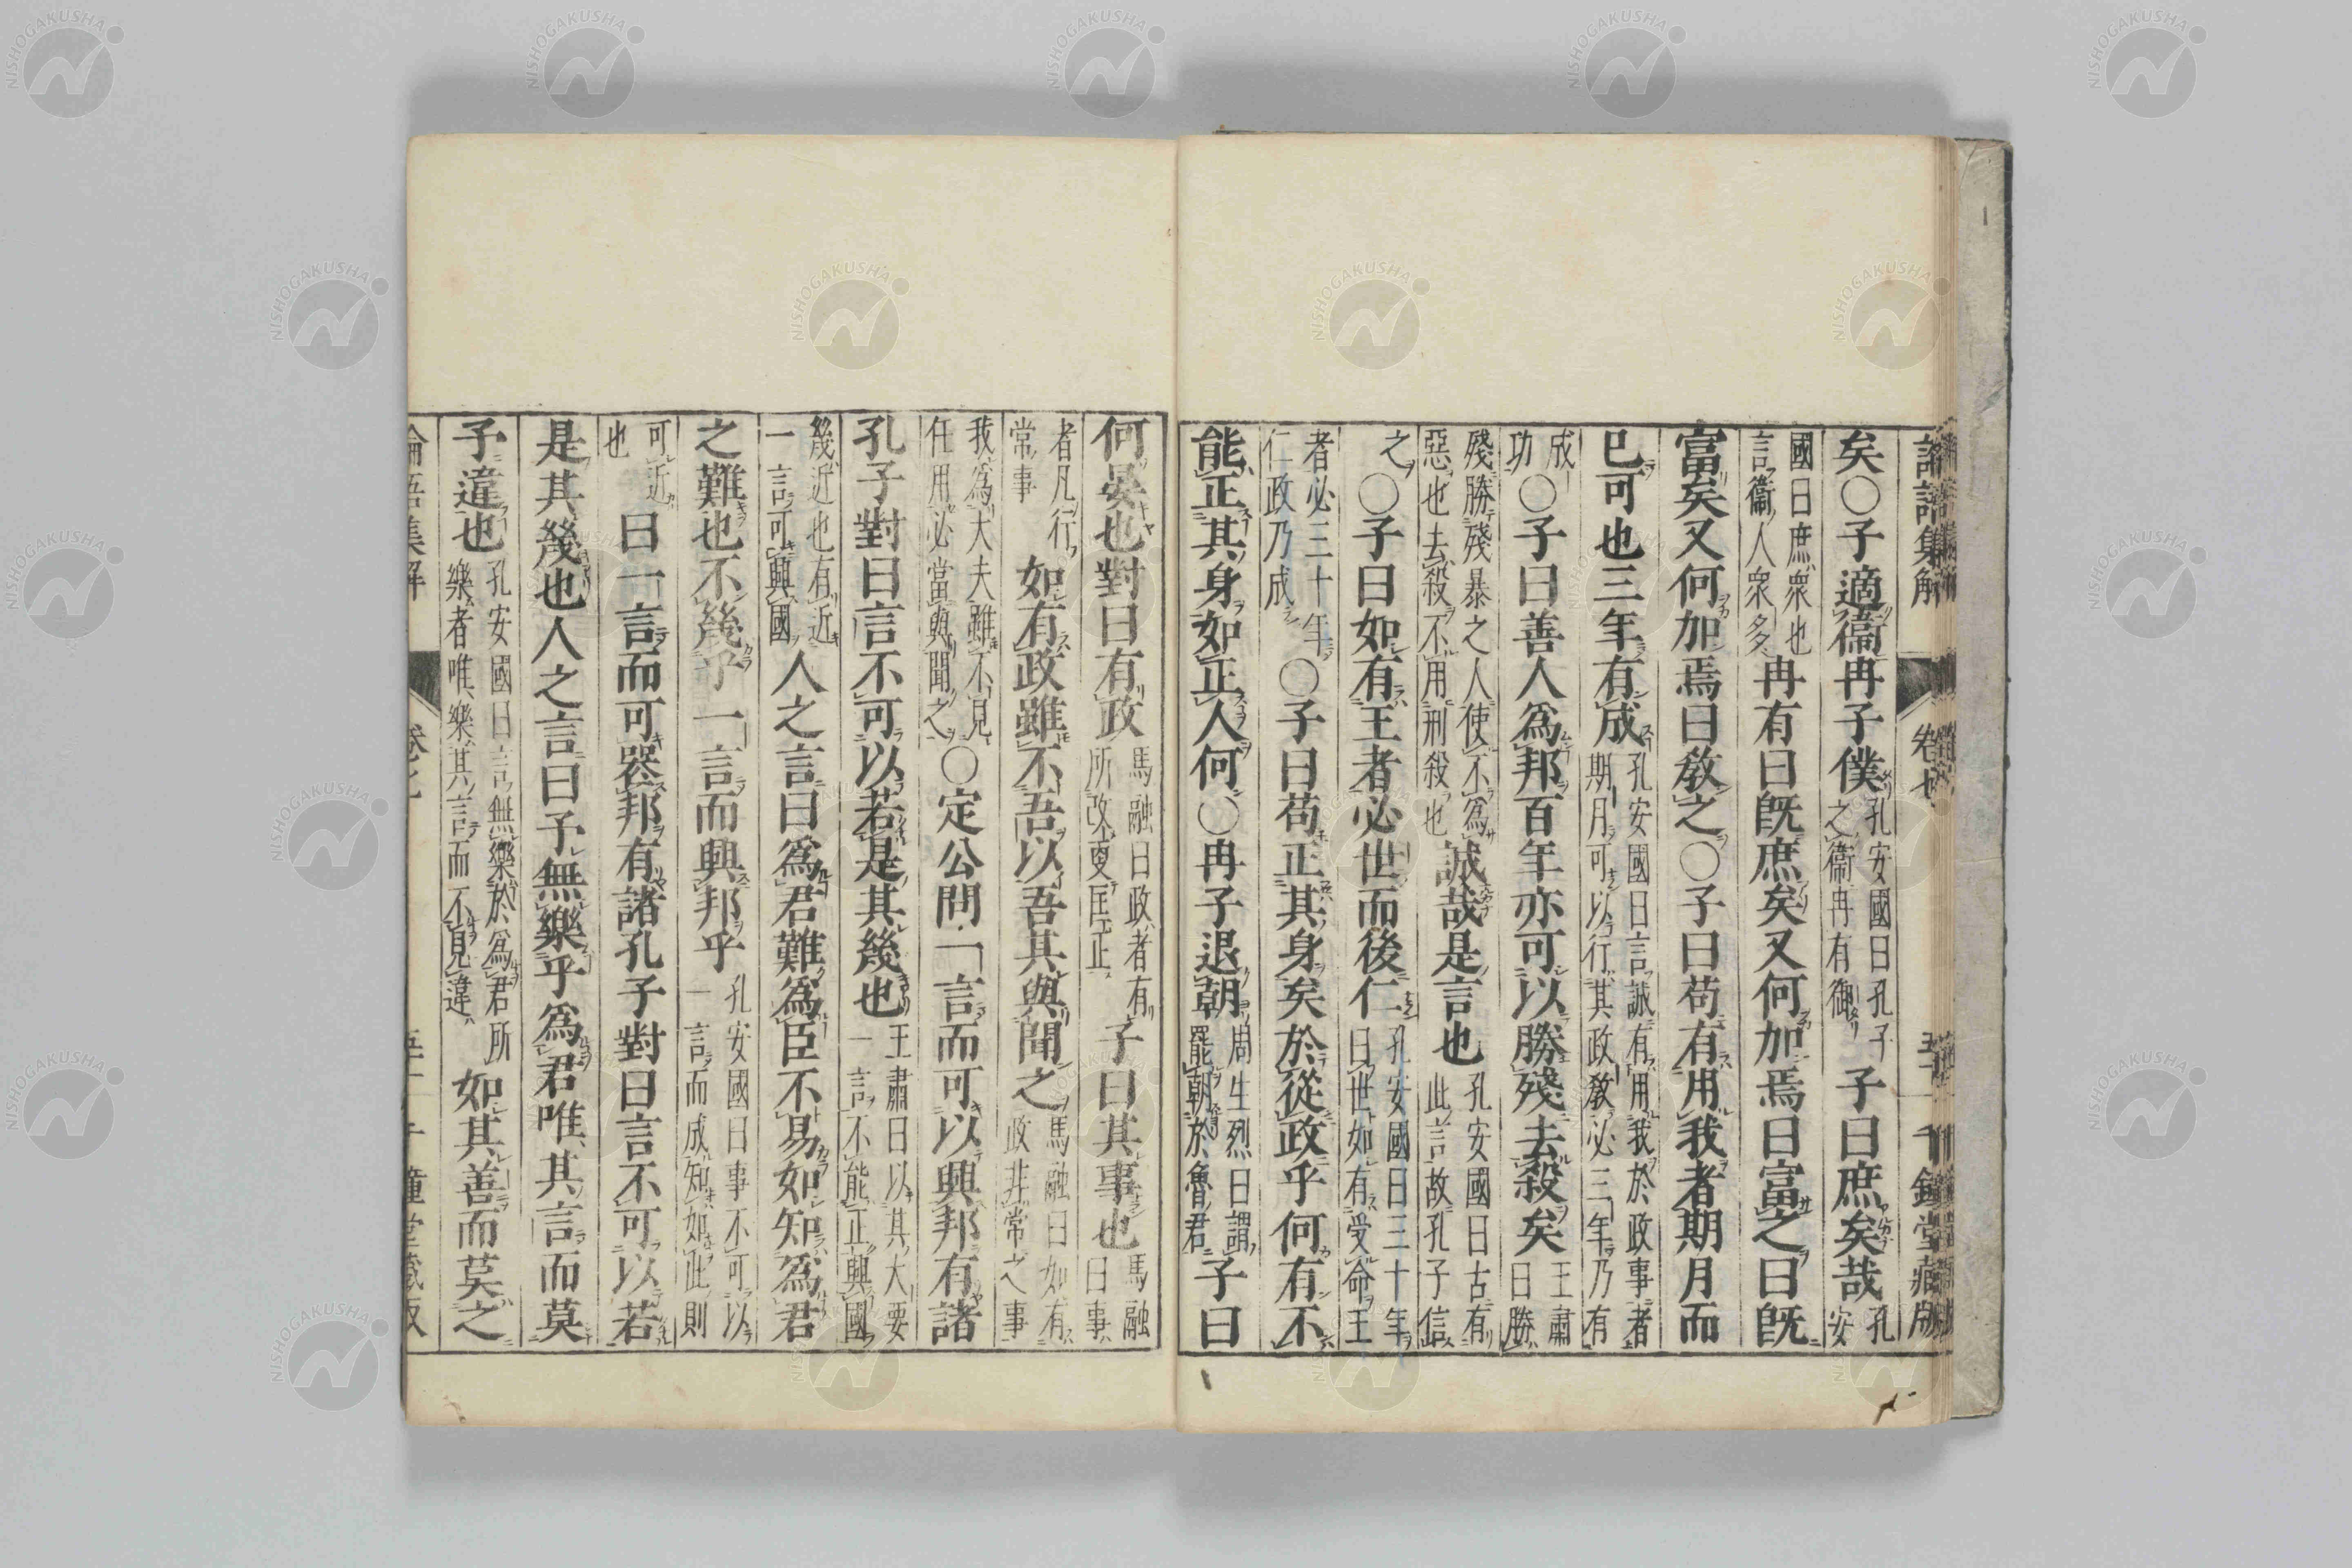 論語集解 卷七 千鍾堂藏版
矣〇子適衞冉子僕孔安國曰孔子之衞冉有御子曰庶矣哉孔安
國曰庶衆也言衞人衆多冉有曰既庶矣又何加焉曰富之曰既
富矣又何加焉曰敎之〇子曰苟有用我者期月而
已可也三年有成孔安國曰言誠有用我於政事者期月可以行其政敎必三年乃有
成功〇子曰善人爲邦百年亦可以勝殘去殺矣王肅曰勝
殘勝殘暴之人使不爲惡也去殺不用刑殺也誠哉是言也孔安國曰古有此言故孔子信
之〇子曰如有王者必世而後仁孔安國曰三十年曰世如有受命王
者必三十年仁政乃成〇子曰苟正其身矣於從政乎何有不
能正其身如正人何〇冉子退朝周生烈曰謂罷朝於魯君子曰
何晏也對曰有政馬融曰政者有所改更匡正子曰其事也馬融曰事
者凡行常事如有政雖不吾以吾其與聞之馬融曰如有政非常之事
我爲大夫雖不見任用必當與聞之〇定公問一言而可以興邦有諸
孔子對曰言不可以若是其幾也王肅曰以其大要一言不能正興國
幾近也有近一言可興國人之言曰爲君難爲臣不易如知爲君
之難也不幾乎一言而興邦乎孔安國曰事不可以一言而成知如此則
可近也曰一言而可喪邦有諸孔子對曰言不可以若
是其幾也人之言曰予無樂乎爲君唯其言而莫
予違也孔安國曰言無樂於爲君所樂者唯樂其言而不見違如其善而莫之
論語集解 卷七 千鍾堂藏版
NISHOGAKUSHA